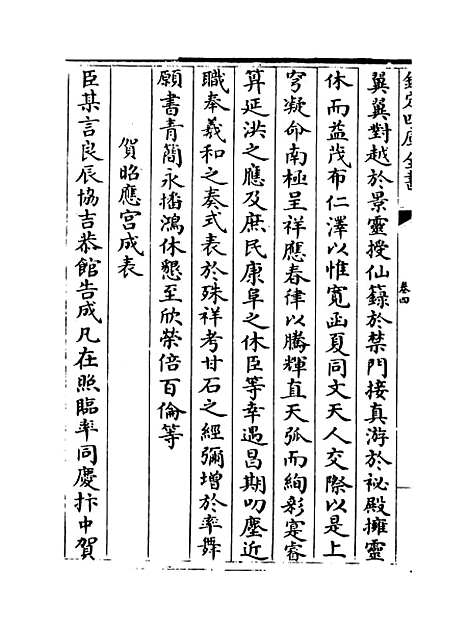 欽定四庫全書
卷四
翼翼對越於景靈授仙籙於禁門接真游於祕殿擁靈
休而益茂布仁澤以惟寛函夏同文天人交際以是上
穹凝命南極呈祥應春律以騰輝直天弧而絢彩寔睿
算延洪之應及庶民康阜之休臣等幸遇昌期叨塵近
職奉羲和之奏式表於殊祥考甘石之經彌增於率舞
願書青簡永播鴻休懇至欣榮倍百倫等
賀昭應宫成表
臣某言良辰協吉恭館告成凡在照臨率同慶抃中賀